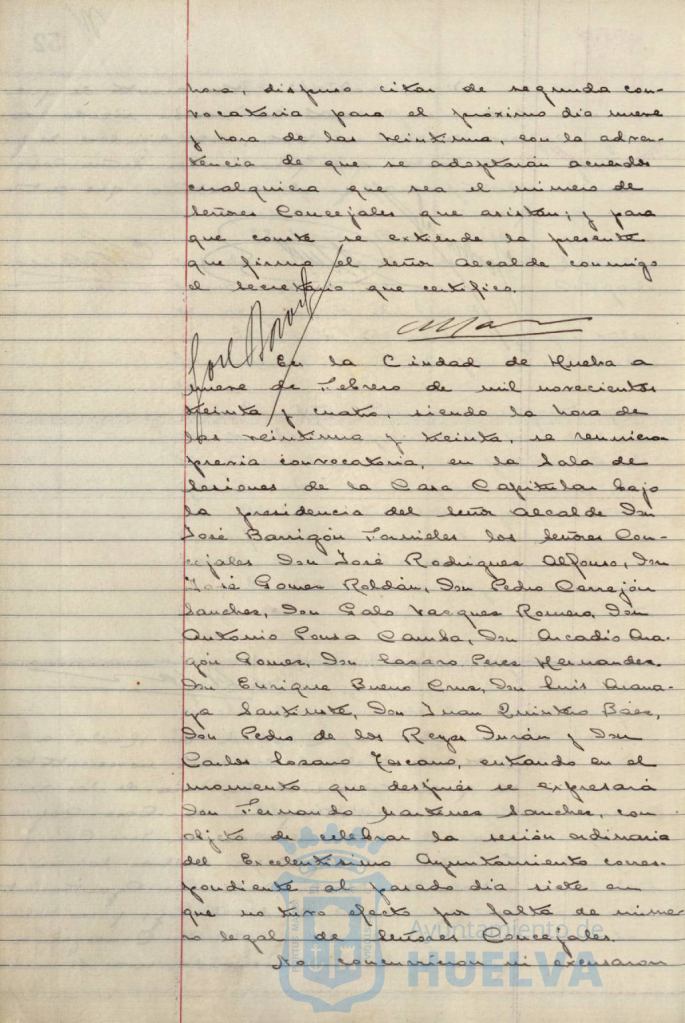 hora, dispuso citar de segunda con-
vocatoria para el próximo dia nueve
y hora de las veintiuna, con la adver-
tencia de que se adoptarán acuerdos
cualquiera que sea el número de
Señores Concejales que asistan; y para
que conste se extiende la presente
que firma el Señor Alcalde conmigo
el Secretario que certifico.
José Barrigón
En la Ciudad de Huelva a
nueve de Febrero de mil novecientos
treinta y cuatro, siendo la hora de
las veintiuna y treinta, se reunieron
previa convocatoria, en la Sala de
Sesiones de la Casa Capitular bajo
la presidencia del Señor Alcalde Don
José Barrigón Fornieles los Señores Con-
cejales Don José Rodriguez Alfonso, Don
José Gomez Roldán, Don Pedro Cerrejón
Sanchez, Don Galo Vazquez Romero, Don
Antonio Pousa Camba, Don Arcadio Ara-
gón Gomez, Don Lazaro Perez Hernandez.
Don Enrique Bueno Cruz, Don Luis Arana-
ga Don Juan Quintero Báez,
Don Pedro de los Reyes Durán y Don
Carlos Lozano Toscano, entrando en el
momento que después se expresará
Don Fernando Martinez Sanchez, con
objeto de celebrar la sesión ordinaria
del Excelentísimo Ayuntamiento corres-
pondiente al pasado dia siete en
que no tuvo efecto por falta de núme-
ro legal de Señores Concejales.
No concurrieron ni excusaron
Ayuntamiento de
HUELVA